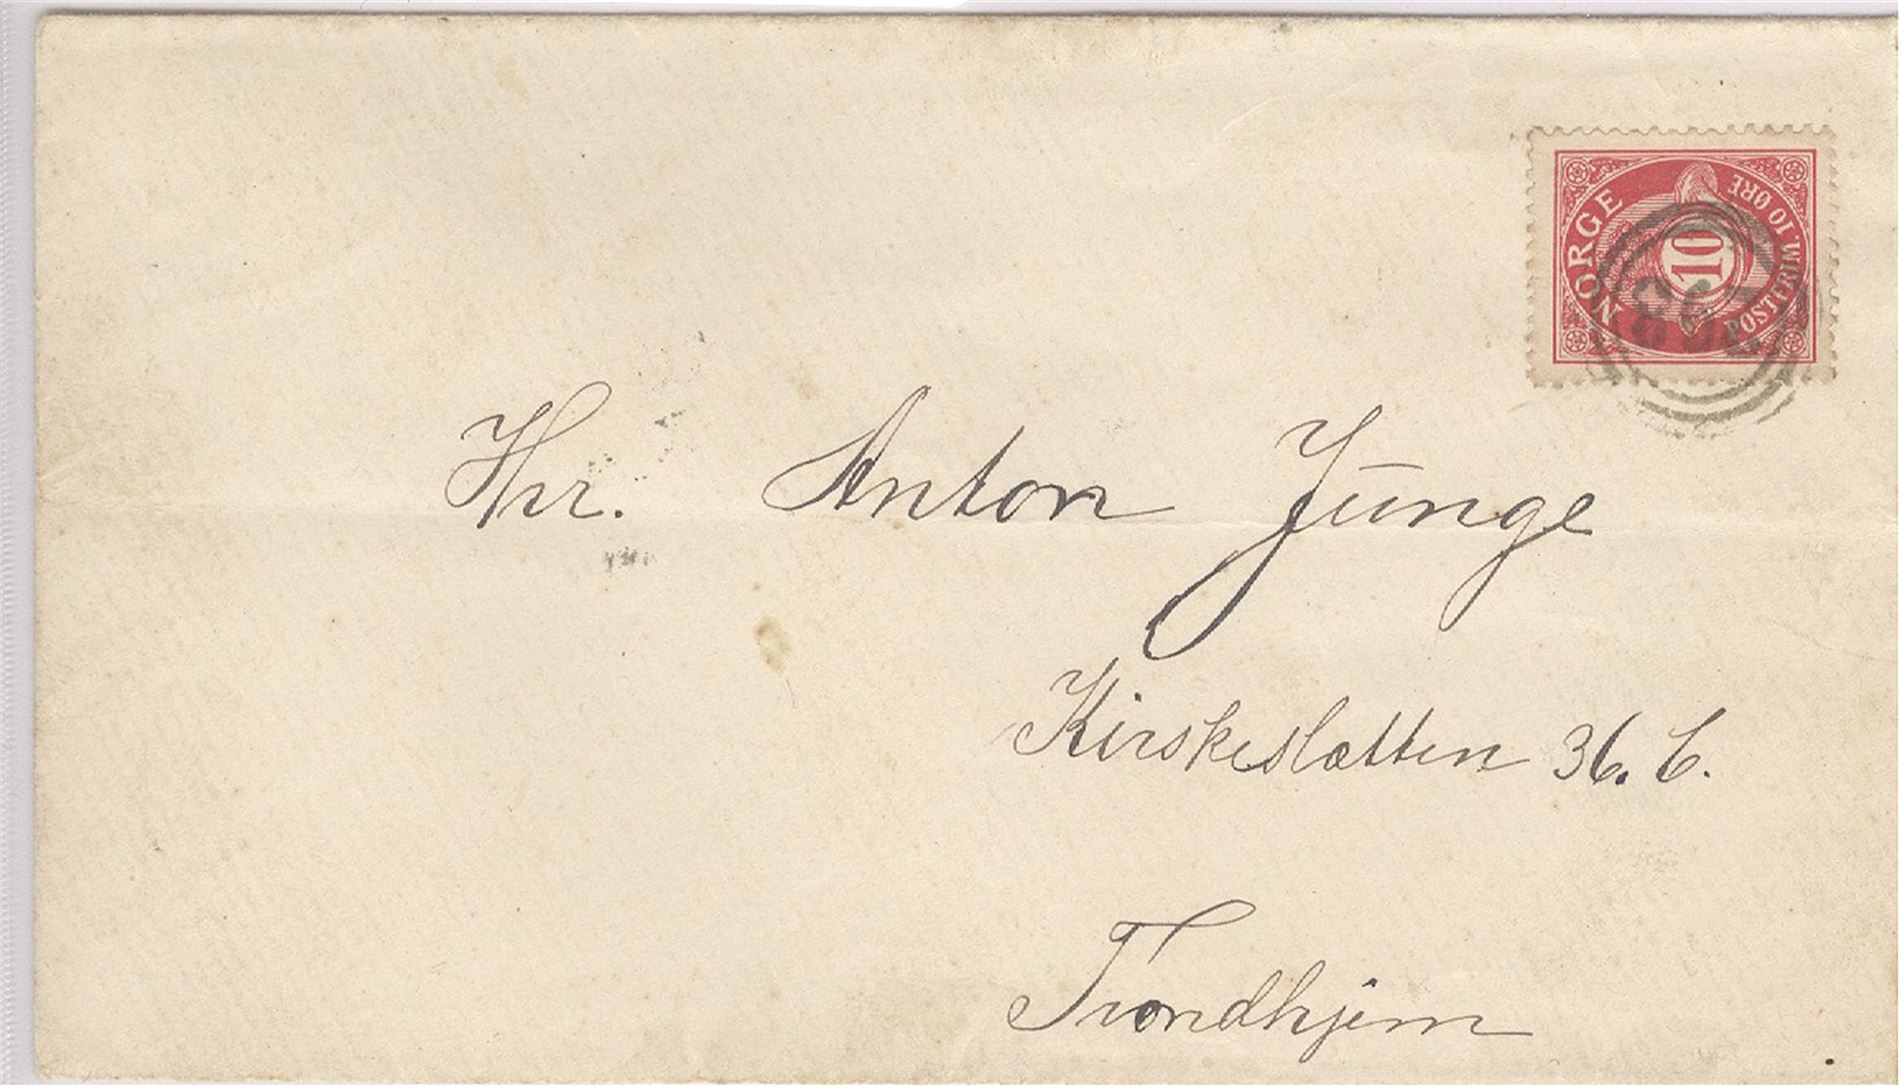 NORGE
POSTFRIM. 10 ØRE
10
293
Hr. Anton Junge
Kirskeslætten 36. C.
Trondhjem